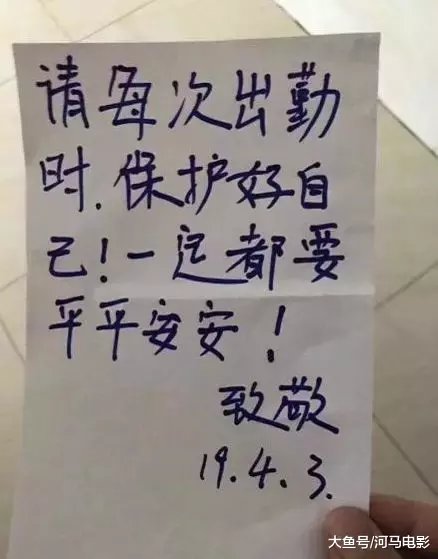 请每次出勤
时.保护好自
己!一定都要
平平安安!
致敬
19.4.3.
大鱼号/河马电影